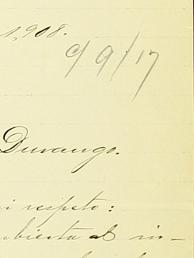 1,908.
c/9/17
Durango.
i respeto:
abierta el in-